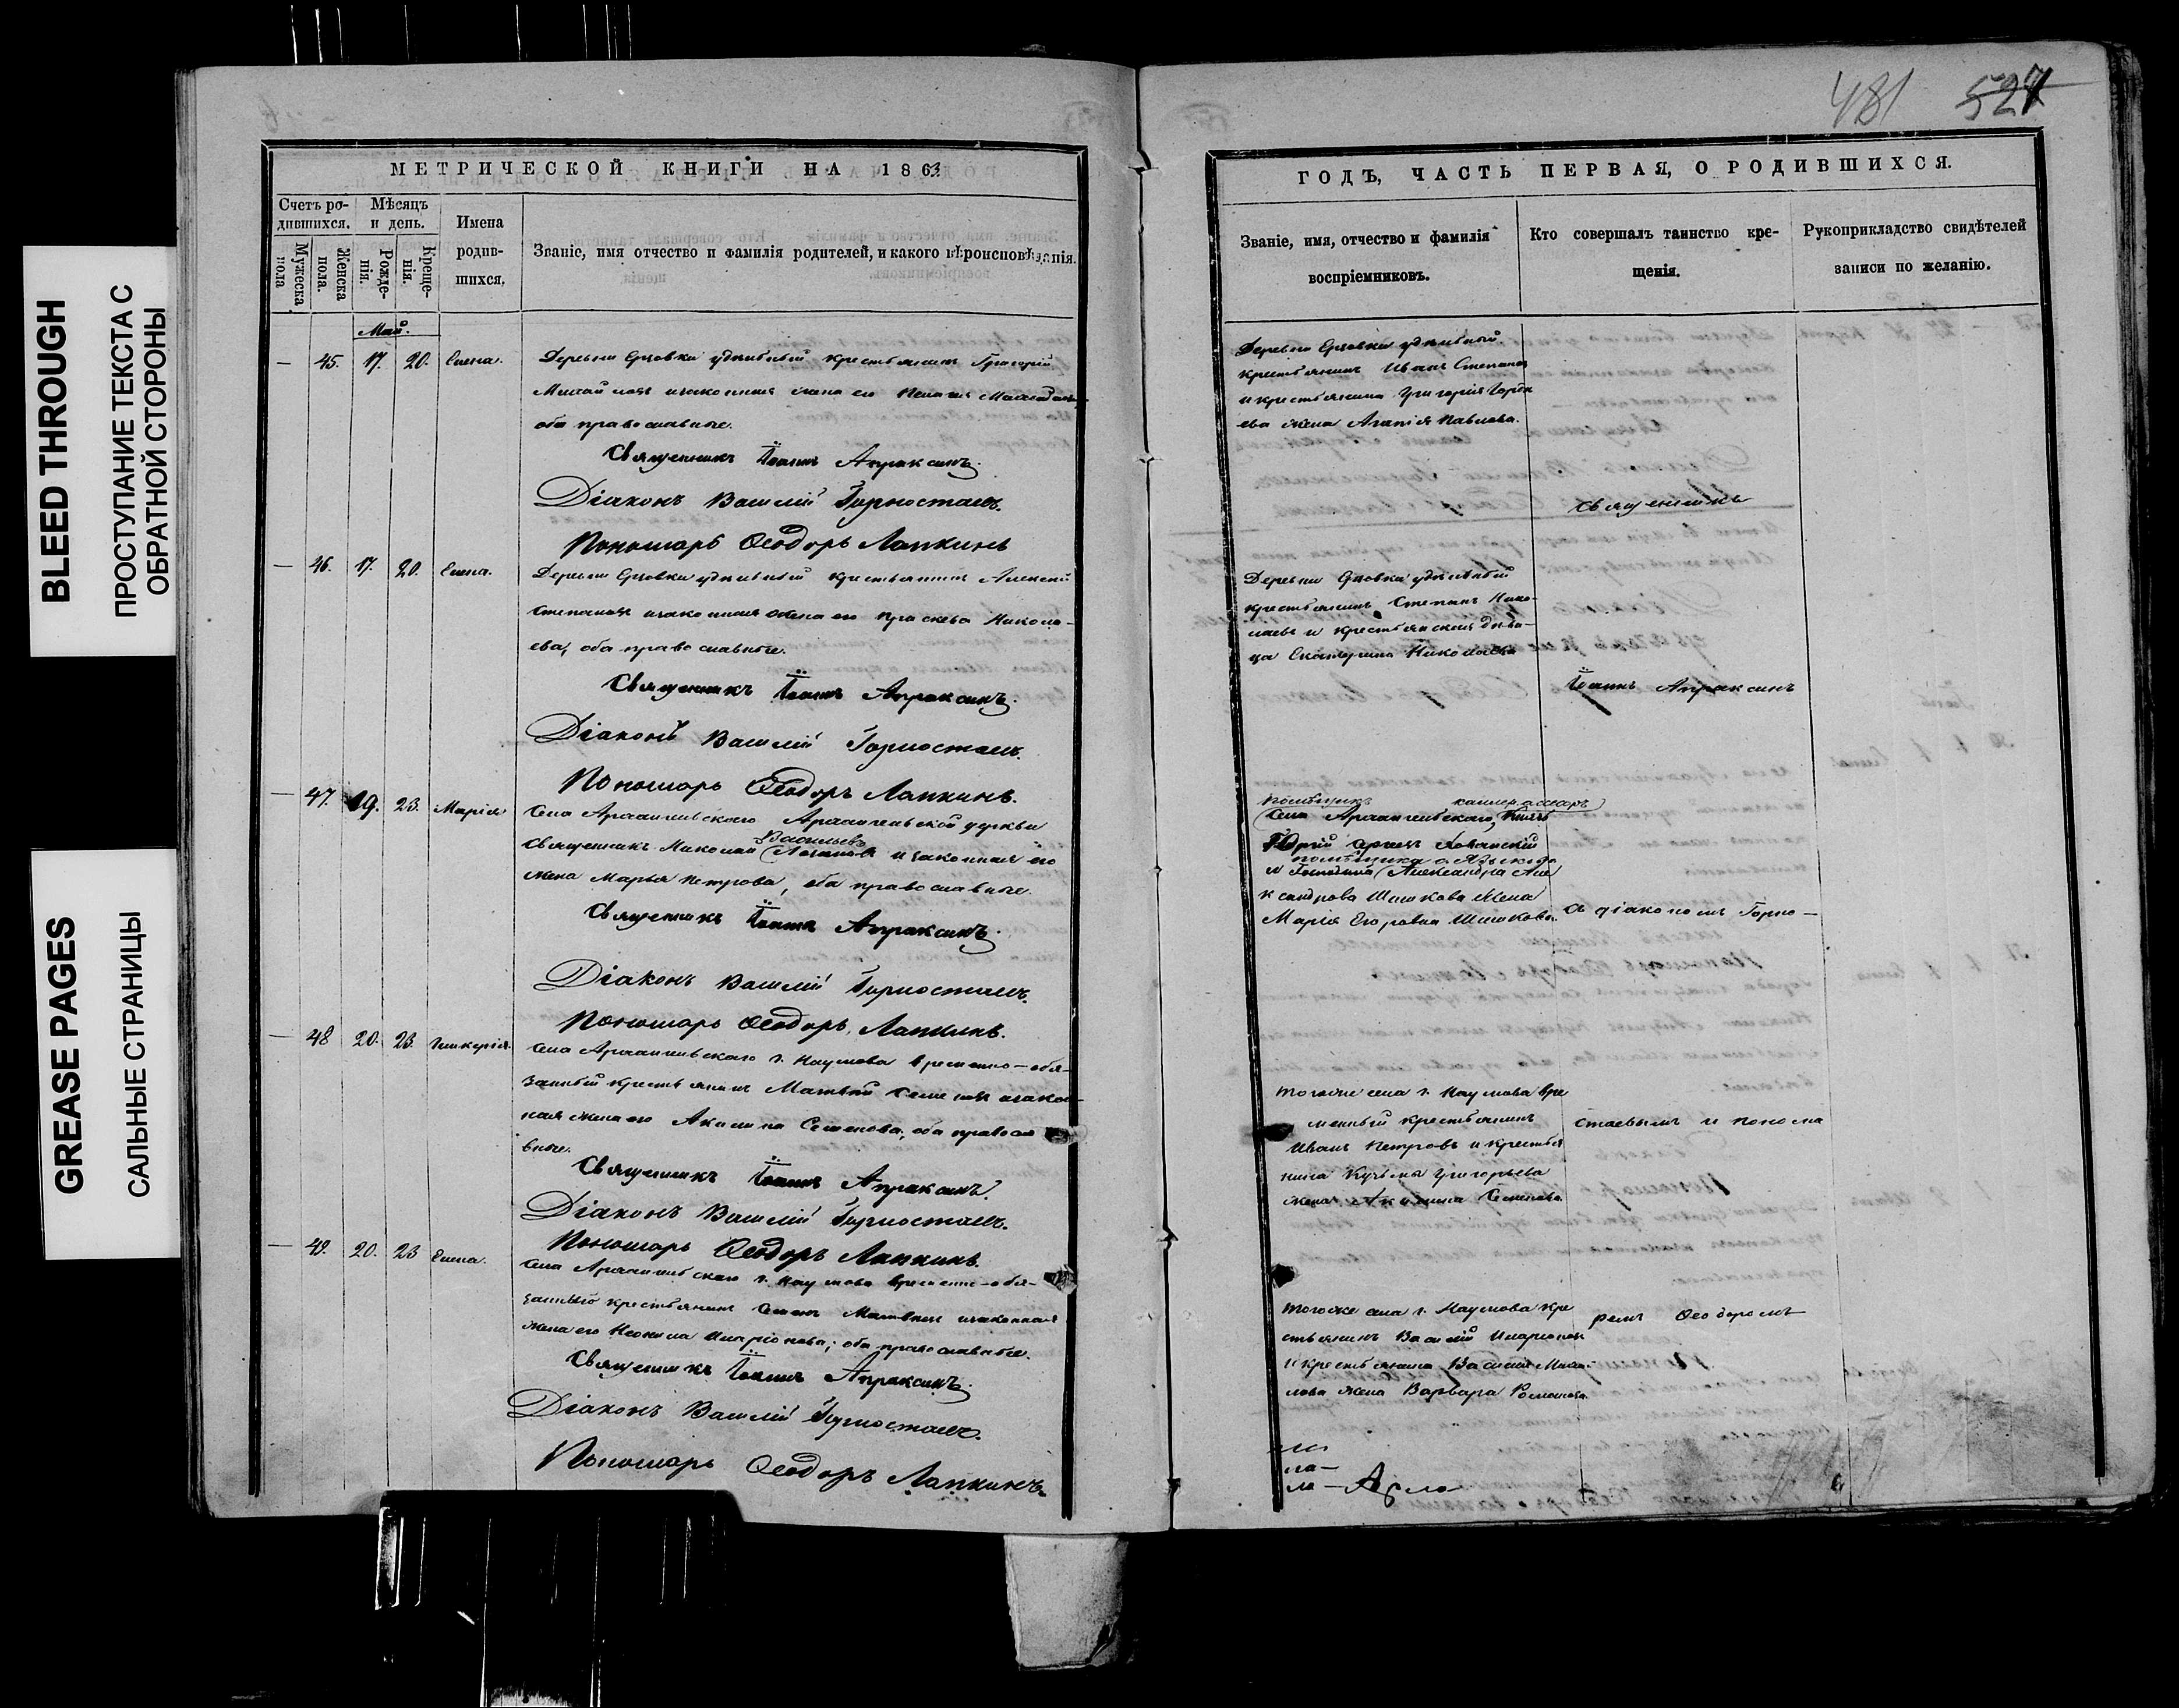 BLEED THROUGH
ПРОСТУПАНИЕ ТЕКСТА С
ОБРАТНОЙ СТОРОНЫ
GREASE PAGES
САЛЬНЫЕ СТРАНИЦЫ
МЕТРИЧЕСКОЙ КНИГИ НА 1863
Счетъ ро-
дившихся.
Мѣсяцъ
и день.
Имена
родив-
шихся.
Мужеска
пола
Женска
пола.
Рожде-
нія.
Креще-
нія.
Званіе, имя отчество и фамилія родителей, и какого вѣроисповѣданія.
Май.
— 45. 17. 20. Елена.
Деревни удѣльный крестьянинъ Григорій
Михайловъ и законная жена его
оба православные.
Священникъ Іоаннъ Апраксинъ.
Діаконъ Василій Горностаевъ.
Пономарь Ѳеодоръ Лапкинъ
— 46. 17. 20. Елена.
Деревни удѣльный крестьянинъ Алексей
Степановъ и законная жена его Праскева Никола-
ева, оба православные.
Священникъ Іоаннъ Апраксинъ.
Діаконъ Василій Горностаевъ.
Пономарь Ѳеодоръ Лапкинъ.
— 47. 19. 23. Марія
Села Архангельскаго Архангельской церкви
Васильевъ
священникъ Николай и законная его
жена Марья Петрова, оба православные.
Священникъ Іоаннъ Апраксинъ.
Діаконъ Василій Горностаевъ.
Пономарь Ѳеодоръ Лапкинъ.
— 48 20. 23. Гликерія.
Села Архангельскаго г. Наумова временно-обя-
занный крестьянинъ Матвѣй Семеновъ и закон-
ная жена его Акилина Семенова, оба правосла
вные.
Священникъ Іоаннъ Апраксинъ.
Діаконъ Василій Горностаевъ.
Пономарь Ѳеодоръ Лапкинъ.
— 49. 20. 23 Елена.
Села Архангельскаго г. Наумова временно-обя-
занный крестьянинъ Семенъ Матвѣевъ и законная
жена его Неонила Иларіонова; оба православные.
Священникъ Іоаннъ Апраксинъ.
Діаконъ Василій Горностаевъ.
Пономарь Ѳеодоръ Лапкинъ.
481 527
ГОДЪ, ЧАСТЬ ПЕРВАЯ, О РОДИВШИХСЯ.
Званіе, имя, отчество и фамилія
воспріемниковъ.
Кто совершалъ таинство кре-
щенія.
Рукоприкладство свидѣтелей
записи по желанію.
Деревни удѣльный
крестьянинъ Иванъ Степановъ
и крестьянина Григорія
ева жена Агапія Павлова.
Священникъ
Деревни удѣльный
крестьянинъ Степанъ Нико-
лаевъ и крестьянская дѣви-
ца Екатерина Николаева
Іоаннъ Апраксинъ
помѣщикъ
Села Архангельскаго, Князь
Юрій Сергеевъ Хованскій
и Александра Але
ксандрова Шишкова жена
Марія Егоровна Шишкова.
съ діакономъ Горно-
тогоже села г. Наумова вре
менный крестьянинъ
Иванъ Петровъ и крестья
нина Кузьмы Григорьева
жена Акилина Семенова.
стаевымъ и понома
тогоже села г. Наумова кре
стьянинъ Василій Иларіоновъ
и крестьянина Василія Миха-
лова жена Варвара Романова.
ремъ Ѳеодоромъ